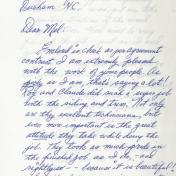 Durham NC.
Dear Mel:
Enclosed is check as per agreement
contract. I am extremely pleased
with the work of your people. As
picky as I am, that's saying a lot!
Roy and Claude did such a super job
with the siding and trim. Not only
are they excellent technicians, but
even more important is the great
attitude they take while doing the
job. They took as much pride in
the finished job as I do, - and
rightfully so - because it is beautiful!